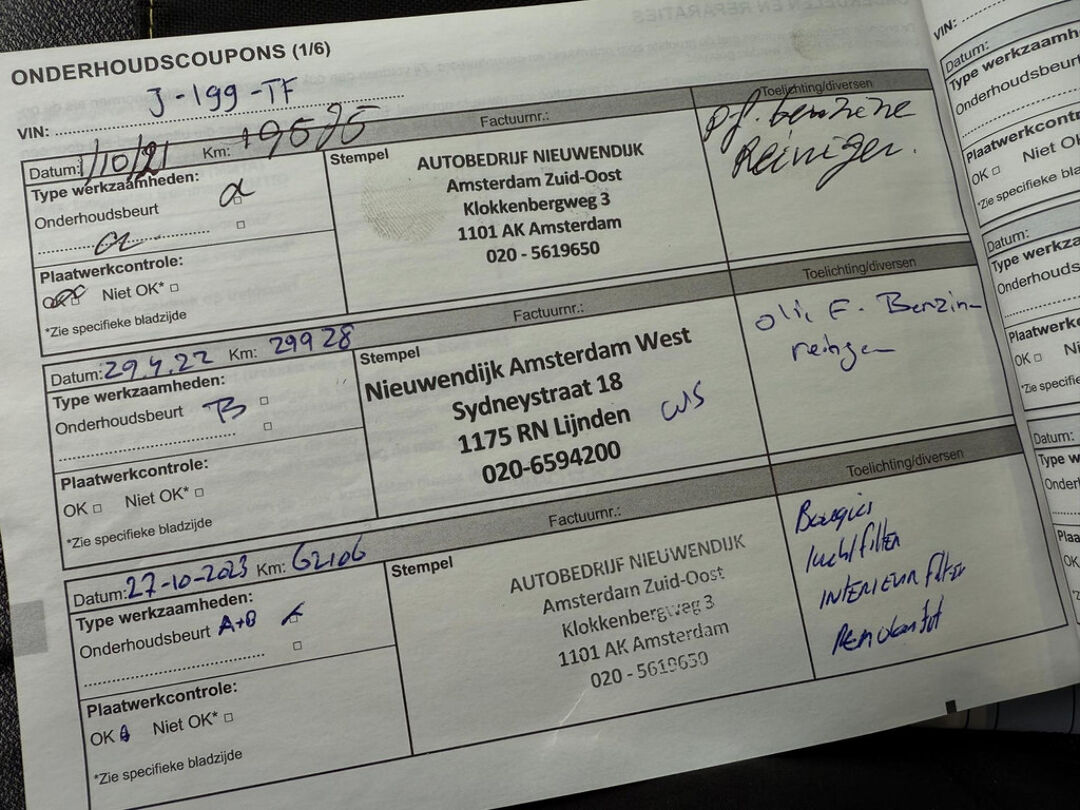 ONDERHOUDSCOUPONS (1/6)
VIN: J-199-TF
Datum: 1/10/21 Km: 19575 Factuurnr.: Toelichting/diversen
Type werkzaamheden:
Onderhoudsbeurt a
Plaatwerkcontrole:
Niet OK*
*Zie specifieke bladzijde
Stempel
AUTOBEDRIJF NIEUWENDIJK
Amsterdam Zuid-Oost
Klokkenbergweg 3
1101 AK Amsterdam
020 - 5619650
Reiniger.
Datum: 29.4.22 Km: 29928 Factuurnr.: Toelichting/diversen
Type werkzaamheden:
Onderhoudsbeurt B
Plaatwerkcontrole:
OK Niet OK*
*Zie specifieke bladzijde
Stempel
Nieuwendijk Amsterdam West
Sydneystraat 18
1175 RN Lijnden
020-6594200
olie F. Benzin
reingen
Datum: 27-10-2023 Km: 62106 Factuurnr.: Toelichting/diversen
Type werkzaamheden:
Onderhoudsbeurt A+B
Plaatwerkcontrole:
OK Niet OK*
*Zie specifieke bladzijde
Stempel
AUTOBEDRIJF NIEUWENDIJK
Amsterdam Zuid-Oost
Klokkenbergweg 3
1101 AK Amsterdam
020 - 5619650
Bougies
luchtfilter
INTERIEUR filter
VIN:
Datum:
Type werkzaamh
Onderhoudsbeurt
Plaatwerkcontr
OK Niet O
*Zie specifieke bla
Datum:
Type werkza
Onderhoudsb
Plaatwerkco
OK Ni
*Zie specifie
Datum:
Type w
Onder
Plaa
OK